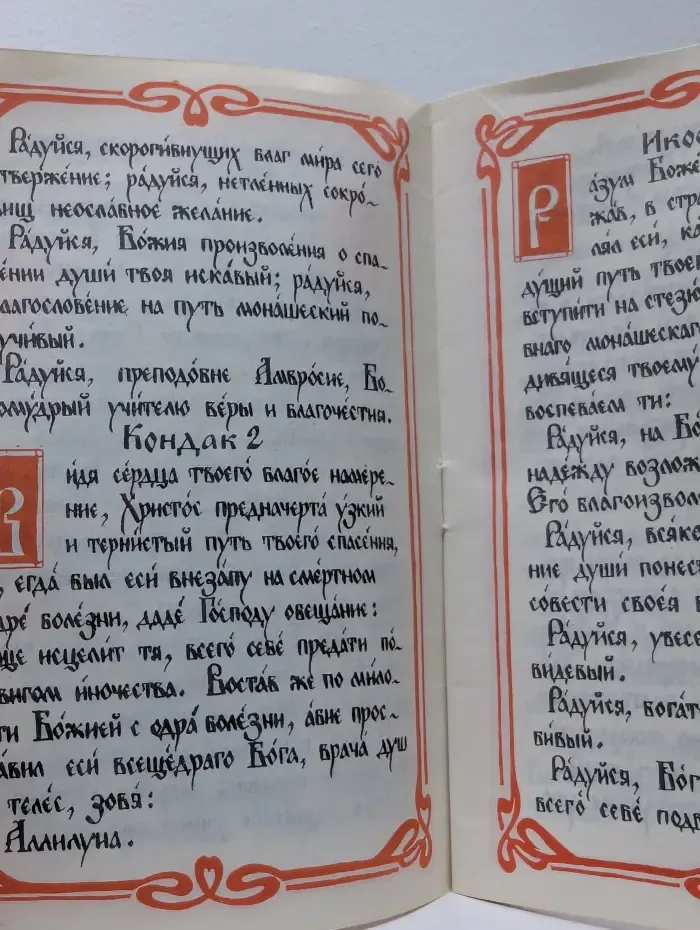 Ра́дуйся, скороги́внущих благ ми́ра сего́
тверже́ние; ра́дуйся, нетле́нных сокро́-
вищ неосла́вное жела́ние.
Ра́дуйся, Бо́жия произволе́ния о спа-
се́нии души́ твоя́ иска́вый; ра́дуйся,
благослове́ние на путь мона́шеский по-
лучи́вый.
Ра́дуйся, преподо́бне Амвро́сие, Бо-
гому́дрый учи́телю ве́ры и благоче́стия.
Кондак 2
Ви́дя се́рдца твоего́ благо́е наме́ре-
ние, Христо́с предначерта́ у́зкий
и терни́стый путь твоего́ спасе́ния,
егда́ был еси́ внеза́пу на сме́ртном
одре́ боле́зни, даде́ Го́споду обеща́ние:
а́ще исцели́т тя, всего́ себе́ преда́ти по́-
двигом и́ночества. Воста́в же по ми́ло-
сти Бо́жией с одра́ боле́зни, а́бие прос-
ла́вил еси́ всеще́драго Бо́га, врача́ душ
теле́с, зовя́:
Аллилуиа.
Ико
Ра́зум Боже
жа́в, в стра
ля́л еси́, ка
ду́щий путь твоег
вступи́ти на стезю
внаго мона́шескаг
дивя́щеся твоему́
воспева́ем ти:
Ра́дуйся, на Бо
наде́жду возло́ж
Его́ благоизво́л
Ра́дуйся, вся́ко
ние души́ понес
со́вести своея́ в
Ра́дуйся, увесе
ви́девый.
Ра́дуйся, бога́т
би́вый.
Ра́дуйся, Бо́г
всего́ себе́ подв